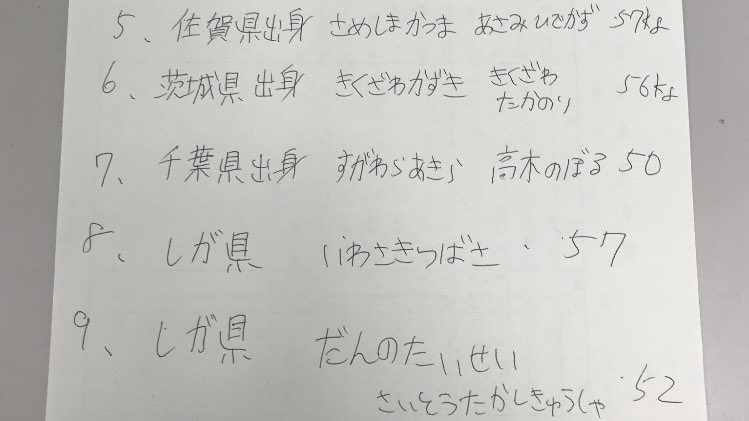 5、佐賀県出身 さめしまかつま あさみひでかず 57kg
6、茨城県出身 きくざわかずき きくざわ たかのり 56kg
7、千葉県出身 すがわらあきら 高木のぼる 50
8、しが県 いわさきつばさ ・57
9、しが県 だんのたいせい
さいとうたかしきゅうしゃ ・52